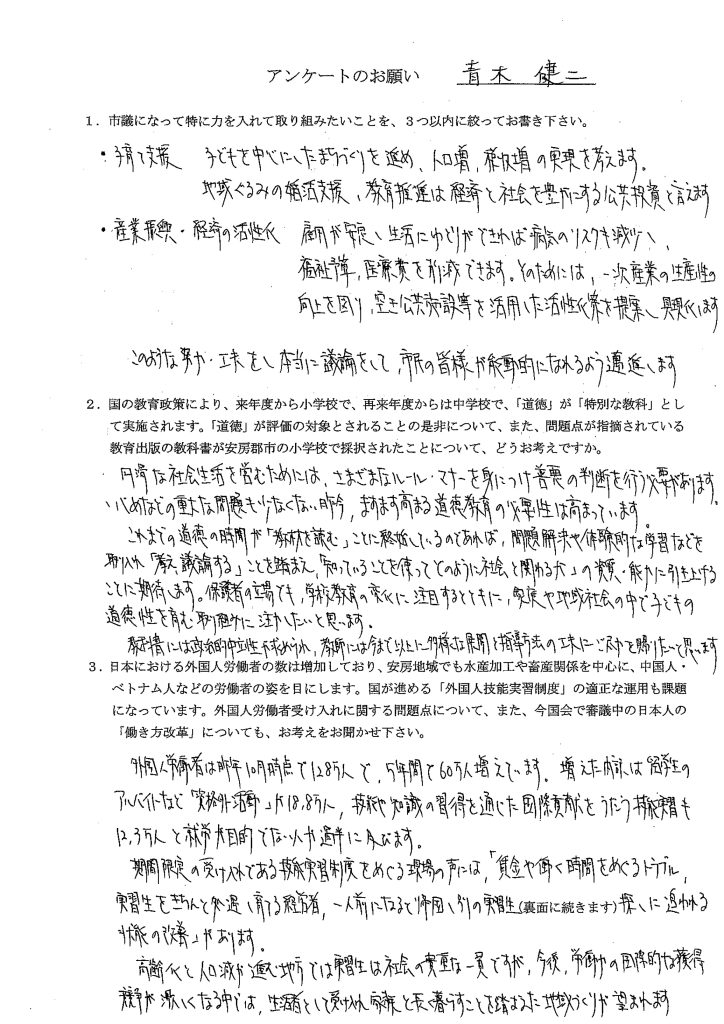 アンケートのお願い 青木 健二
1．市議になって特に力を入れて取り組みたいことを、３つ以内に絞ってお書き下さい。
・子育て支援 子どもを中心にしたまちづくりを進め、人口増、税収増の実現を考えます。
地域ぐるみの婚活支援、教育推進は経済と社会を豊かにする公共投資と言えます
・産業振興・経済の活性化 雇用が安定し生活にゆとりができれば病気のリスクも減少し、
福祉予算、医療費を削減できます。そのためには、一次産業の生産性の
向上を図り、空き公共施設等を活用した活性化案を提案し具現化します
このような努力・工夫をし本当に議論をして、市民の皆様が能動的になれるよう邁進します
2．国の教育政策により、来年度から小学校で、再来年度からは中学校で、「道徳」が「特別な教科」とし
て実施されます。「道徳」が評価の対象とされることの是非について、また、問題点が指摘されている
教育出版の教科書が安房郡市の小学校で採択されたことについて、どうお考えですか。
円滑な社会生活を営むためには、さまざまなルール・マナーを身につけ善悪の判断を行う必要があります。
いじめなどの重大な問題も少なくない昨今、ますます高まる道徳教育の必要性は高まっています。
これまでの道徳の時間が「教材を読む」ことに終始しているのであれば、問題解決や体験的な学習などを
取り入れ「考え、議論する」ことを踏まえ、「知っていることを使ってどのように社会と関わるか」の資質・能力に引き上げる
ことに期待します。保護者の立場でも、学校教育の変化に注目するとともに、家庭や地域社会の中で子どもの
道徳性を育む取り組みに活かしたいと思います。
教科書には政治的中立性が求められ、教師には今まで以上に多様な展開と指導方法の工夫にご尽力を賜りたいと思います。
3．日本における外国人労働者の数は増加しており、安房地域でも水産加工や畜産関係を中心に、中国人・
ベトナム人などの労働者の姿を目にします。国が進める「外国人技能実習制度」の適正な運用も課題
になっています。外国人労働者受け入れに関する問題点について、また、今国会で審議中の日本人の
「働き方改革」についても、お考えをお聞かせ下さい。
外国人労働者は昨年10月時点で128万人で、5年間で60万人増えています。増えた内訳は留学生の
アルバイトなど「資格外活動」が18.8万人、技術や知識の習得を通じた国際貢献をうたう技能実習も
12.3万人と就労が目的でない人が過半に及びます。
期間限定の受け入れである技能実習制度をめぐる現場の声には、「賃金や働く時間をめぐるトラブル、
実習生をきちんと処遇し育てる経営者、一人前になると帰国し別の実習生(裏面に続きます)探しに追われる
状態の改善」があります。
高齢化と人口減が進む地方では実習生は社会の貴重な一員ですが、今後、労働力の国際的な獲得
競争が激しくなる中では、生活者として受け入れ家族と長く暮らすことを踏まえた地域づくりが望まれます